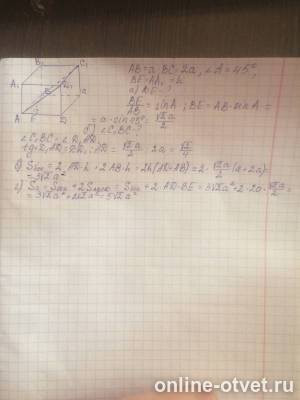 B₁ C₁
A₁ D₁
A F D
a
AB = a; BC = 2a, ∠A = 45°,
BE = AA₁ = h
а) BE - ?
BE/AB = sinA ; BE = AB·sinA =
= a·sin45° = √2a/2
б) ∠C₁BC - ?
∠C₁BC = ∠D₁AD
tg∠D₁AD = DD₁ : AD = √2a/2 : 2a = √2/4
в) Sбок = 2·AD·h + 2AB·h = 2h(AD+AB) = 2·√2a/2(a+2a)
= 3√2a²
г) Sп = Sбок + 2Sпарал = Sбок + 2·AD·BE = 3√2a² + 2·2a·√2a/2 =
= 3√2a² + 2√2a² = 5√2a²
online-otvet.ru